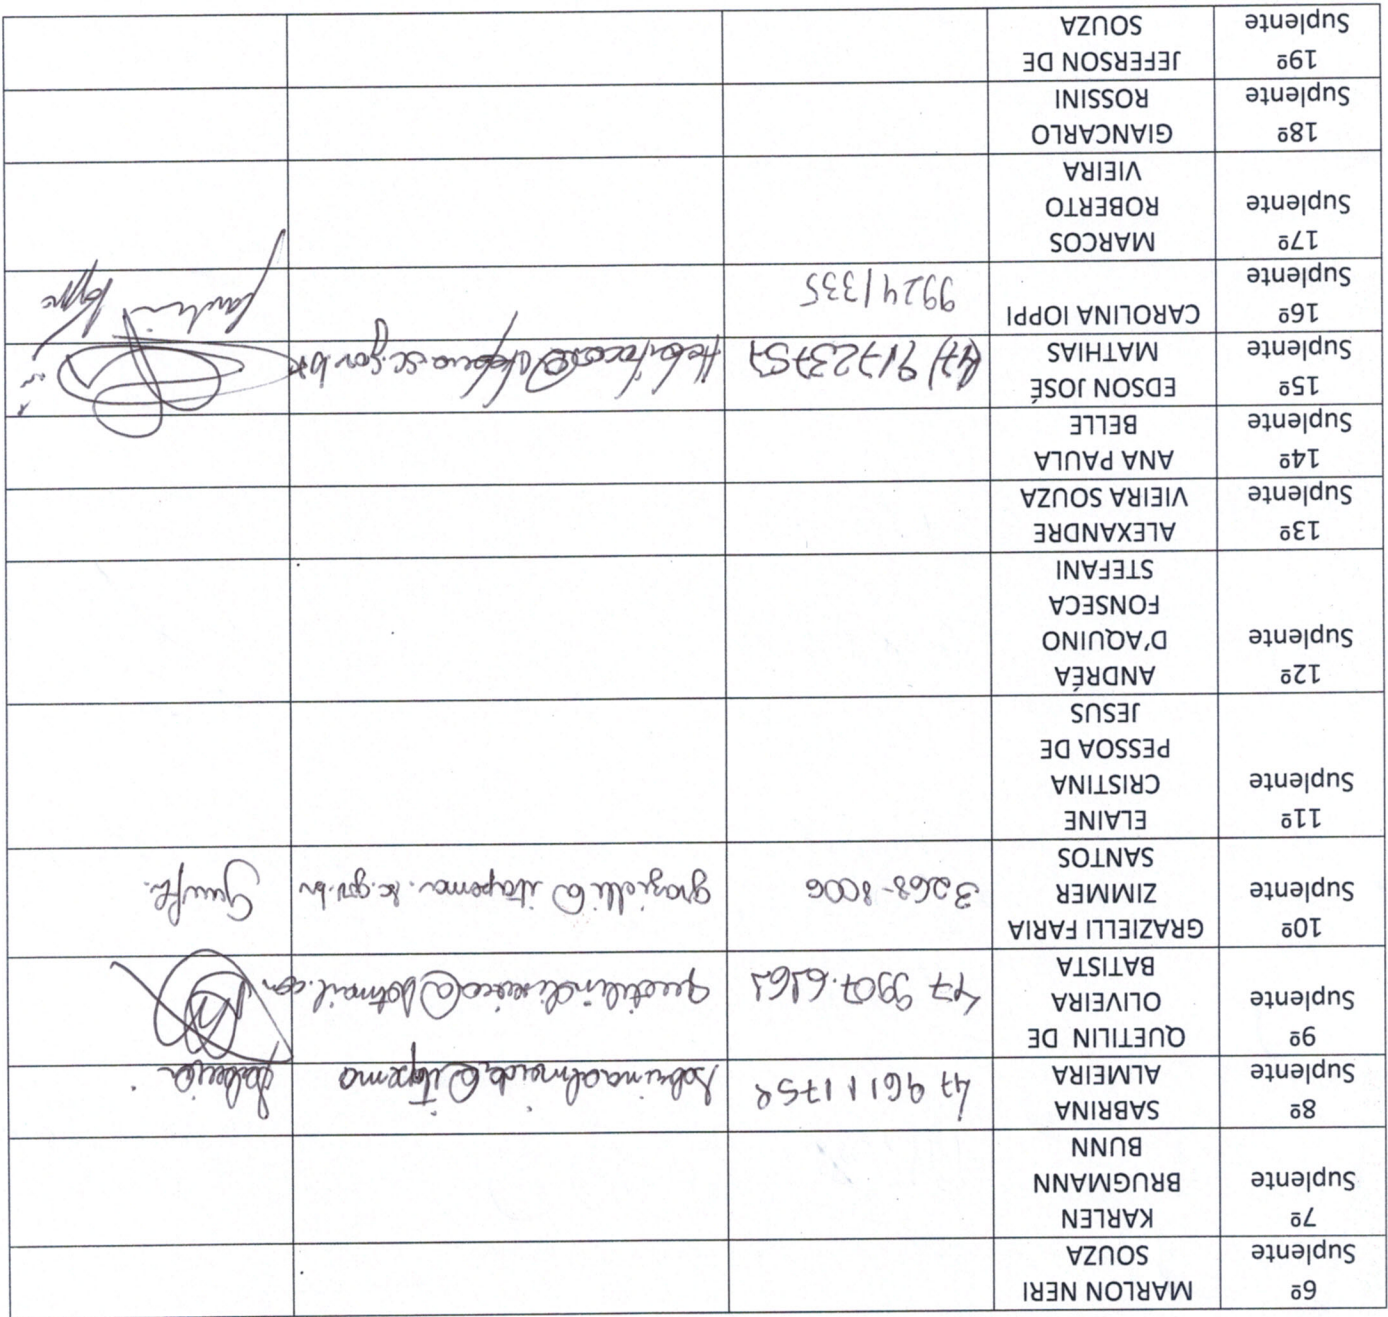 6º
Suplente
MARLON NERI
SOUZA
7º
Suplente
KARLEN
BRUGMANN
BUNN
8º
Suplente
SABRINA
ALMEIRA
47 96111752
9º
Suplente
QUETILIN DE
OLIVEIRA
BATISTA
47 9907.6162
10º
Suplente
GRAZIELLI FARIA
ZIMMER
SANTOS
3268-8006
grazielli@itapema.sc.gov.br
11º
Suplente
ELAINE
CRISTINA
PESSOA DE
JESUS
12º
Suplente
ANDRÉA
D'AQUINO
FONSECA
STEFANI
13º
Suplente
ALEXANDRE
VIEIRA SOUZA
14º
Suplente
ANA PAULA
BELLE
15º
Suplente
EDSON JOSÉ
MATHIAS
(47) 91723757
16º
Suplente
CAROLINA IOPPI
99241335
17º
Suplente
MARCOS
ROBERTO
VIEIRA
18º
Suplente
GIANCARLO
ROSSINI
19º
Suplente
JEFERSON DE
SOUZA